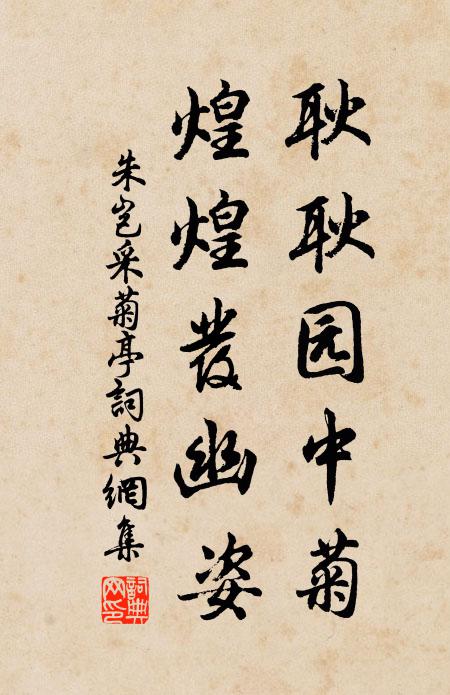 耿耿园中菊
煌煌發幽姿
朱岂采菊亭詞典網集
詞典